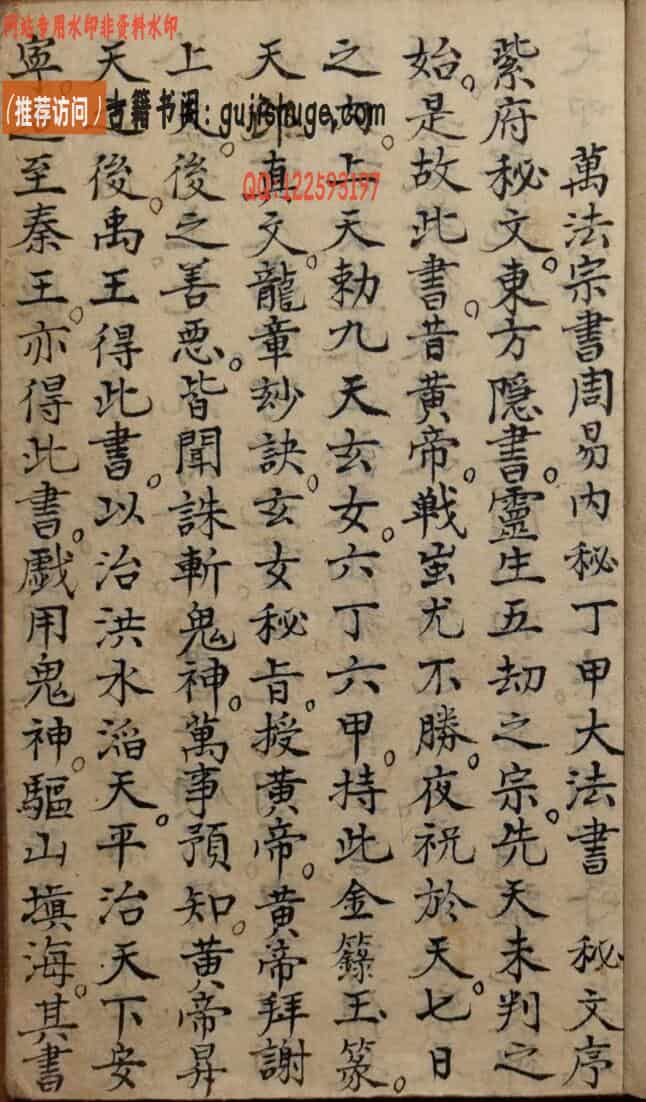 网站专用水印非资料水印
（推荐访问）古籍书阁：gujishuge.com
QQ:122593197
萬法宗書周易內秘丁甲大法書　秘文序
紫府秘文。東方隱書。靈生五劫之宗。先天未判之
始。是故此書。昔黃帝。戰蚩尤不勝。夜祝於天。七日
之內。上天勅九天玄女。六丁六甲。持此金籙玉篆。
天真文。龍章妙訣。玄女秘旨。授黃帝。黃帝拜謝
上天。後之善惡。皆聞誅斬鬼神。萬事預知。黃帝昇
天之後。禹王得此書。以治洪水滔天。平治天下安
寧。至秦王。亦得此書。戲用鬼神。驅山填海。其書